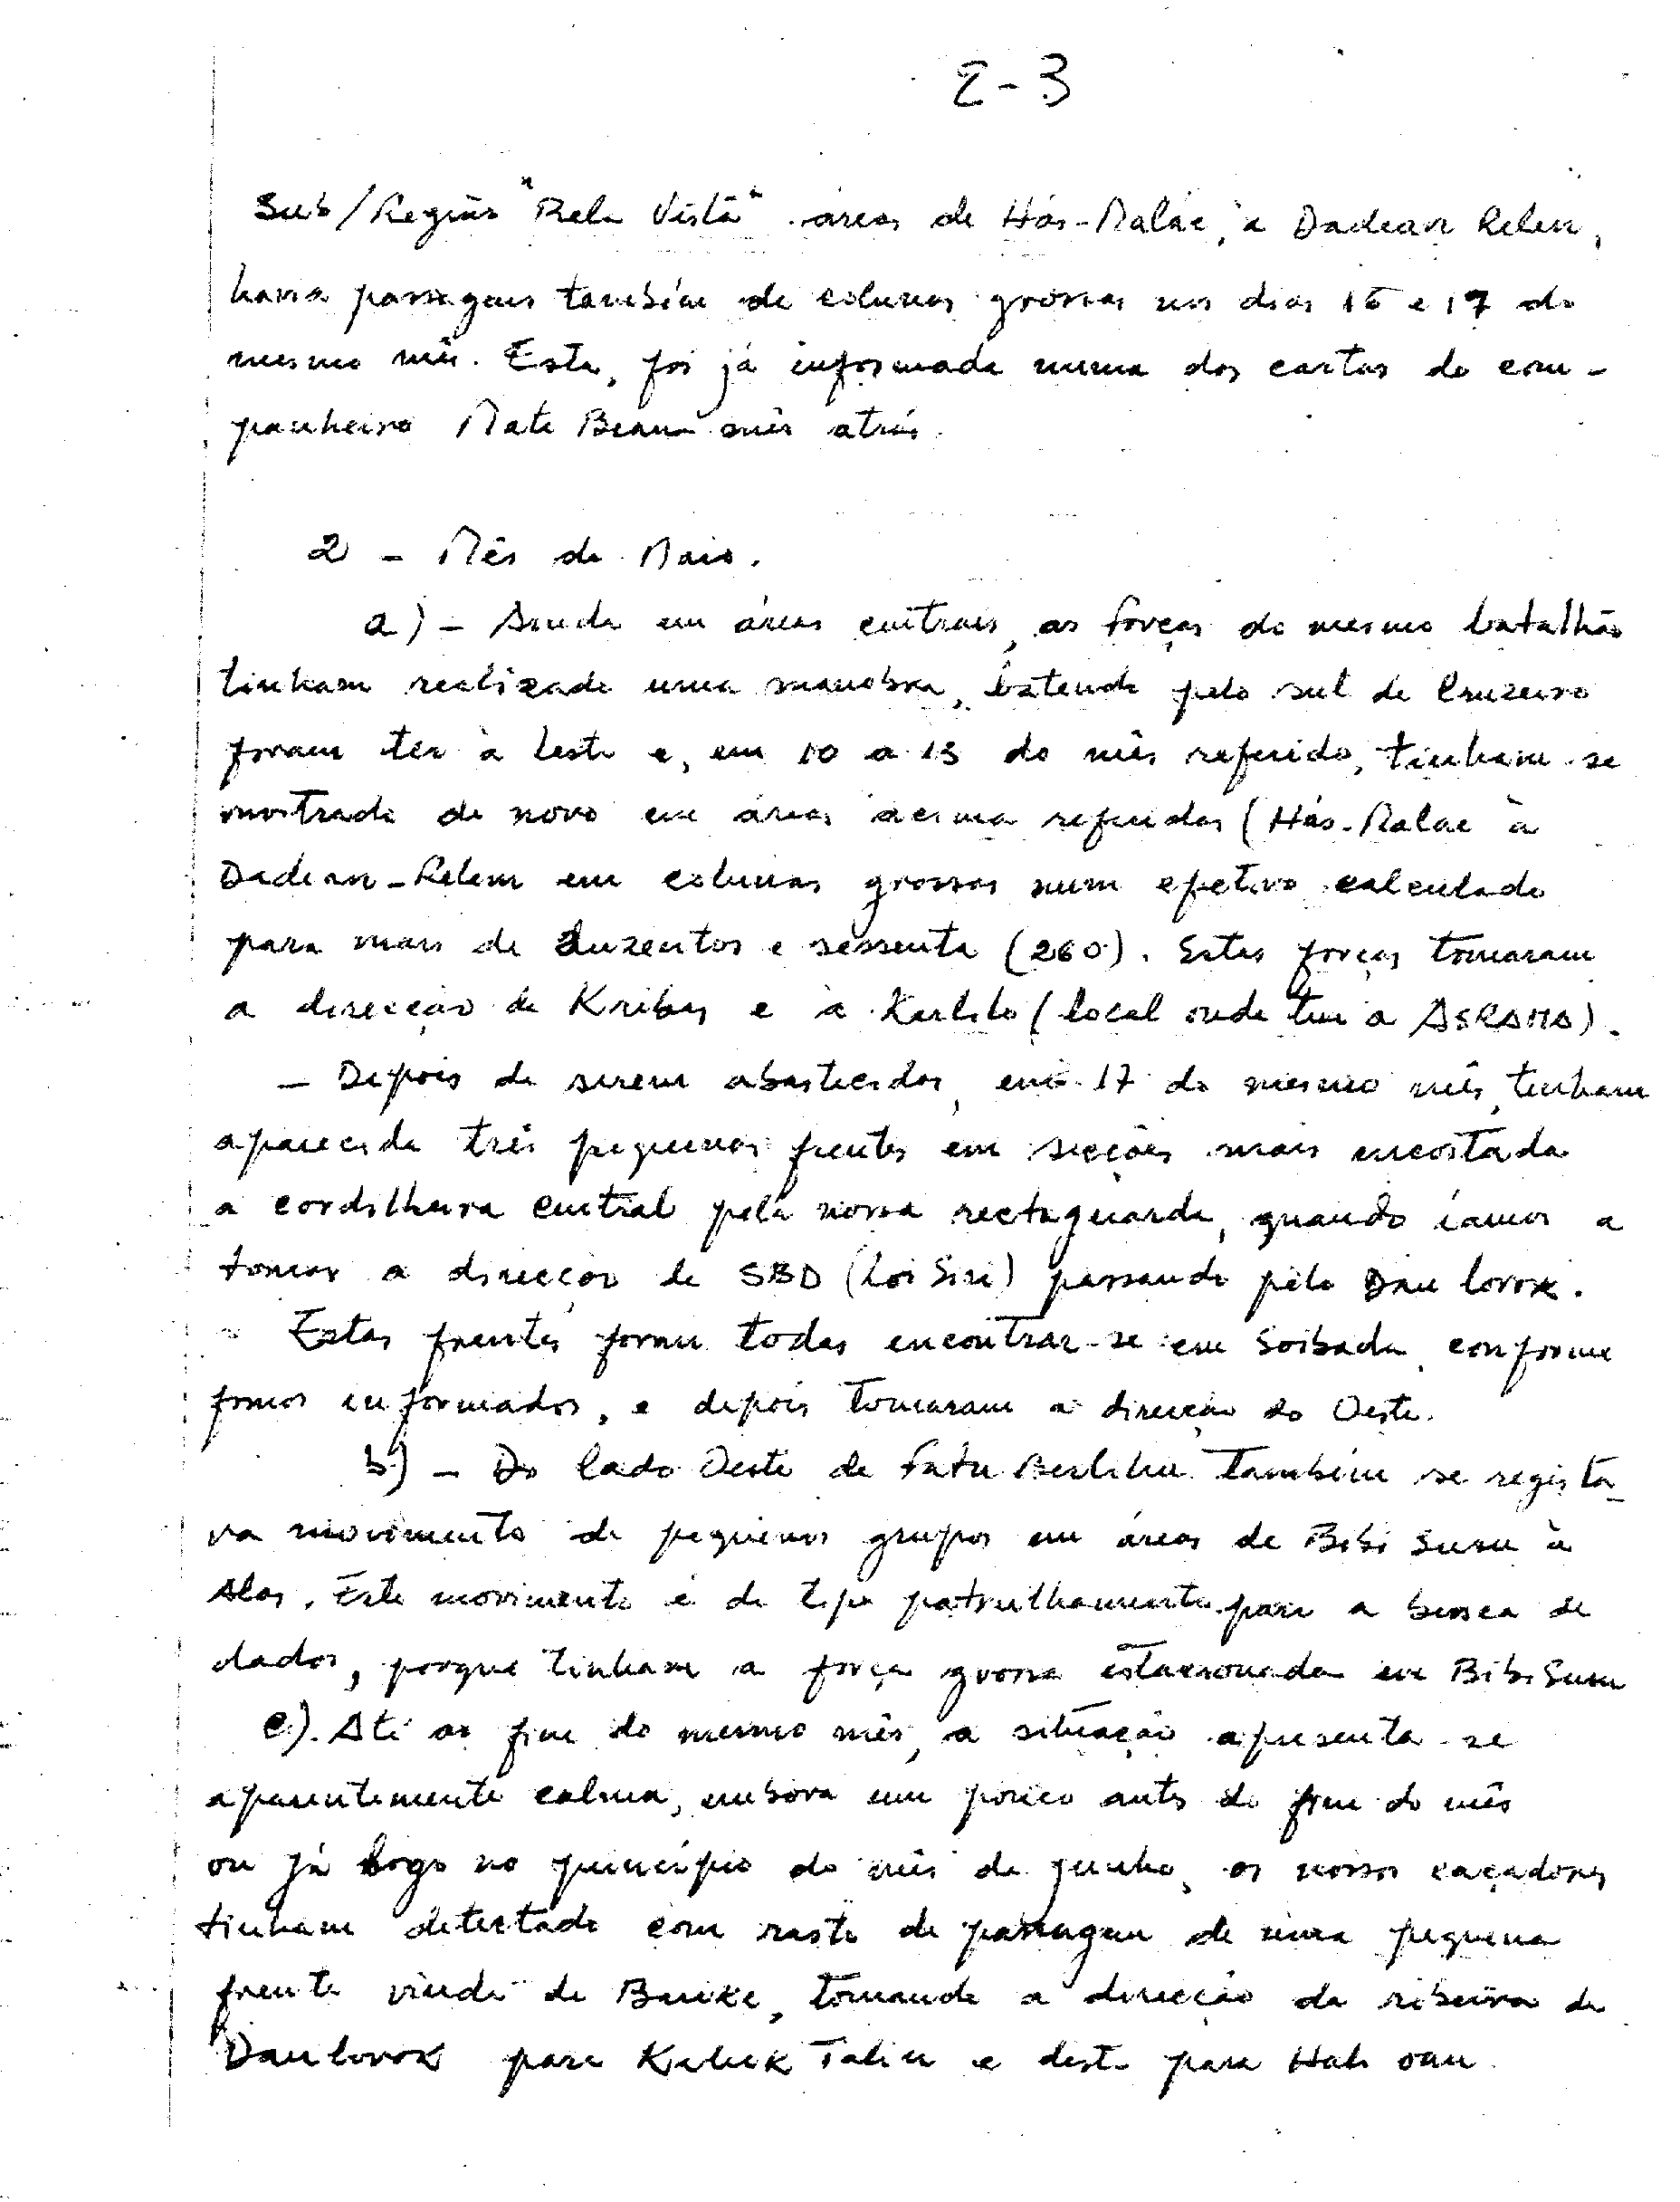 2-3
Sub/Região "Bela Vista" áreas de Hás-Malae, a Dadean Relen,
havia passagens também de colunas grossas nos dias 16 e 17 do
mesmo mês. Esta, foi já informada numa das cartas do com-
panheiro Mate Bean mês atrás.
2 - Mês de Maio.
a) - Ainda em áreas centrais, as forças do mesmo batalhão
tinham realizado uma manobra, batendo pelo sul de Cruzeiro
foram ter à leste e, em 10 a 13 do mês referido, tinham-se
mostrado de novo em áreas acima referidas (Hás-Malae à
Dadean-Relem em colunas grossas num efetivo calculado
para mais de duzentos e sessenta (260). Estas forças tomaram
a direcção de Kribas e à Kerlilo (local onde tem a ASRAMA).
- Depois de serem abastecidos, em 17 do mesmo mês, tinham
aparecido três pequenas frentes em secções mais encostada
a cordilheira central pela nossa rectaguarda, quando íamos a
tomar a direcção de SBD (Loi Siri) passando pelo Dau lorok.
Estas frentes foram todas encontrar-se em Soibada, conforme
fomos informados, e depois tomaram a direcção do Oeste.
b) - Do lado Oeste de Fatu Berlihu também se regista_
va movimento de pequenos grupos em áreas de Bibi Susu à
Alas. Este movimento é de tipo patrulhamento para a busca de
dados, porque tinham a força grossa estacionada em Bibi Susu
c). Até ao fim do mesmo mês, a situação apresenta-se
aparentemente calma, embora um pouco antes do fim do mês
ou já logo no princípio do mês de junho, os nossos caçadores
tinham detectado com rasto de passagem de uma pequena
frente vinda de Barike, tomando a direcção da ribeira de
Dau lorok para Keluk Taliu e deste para Hali oan.